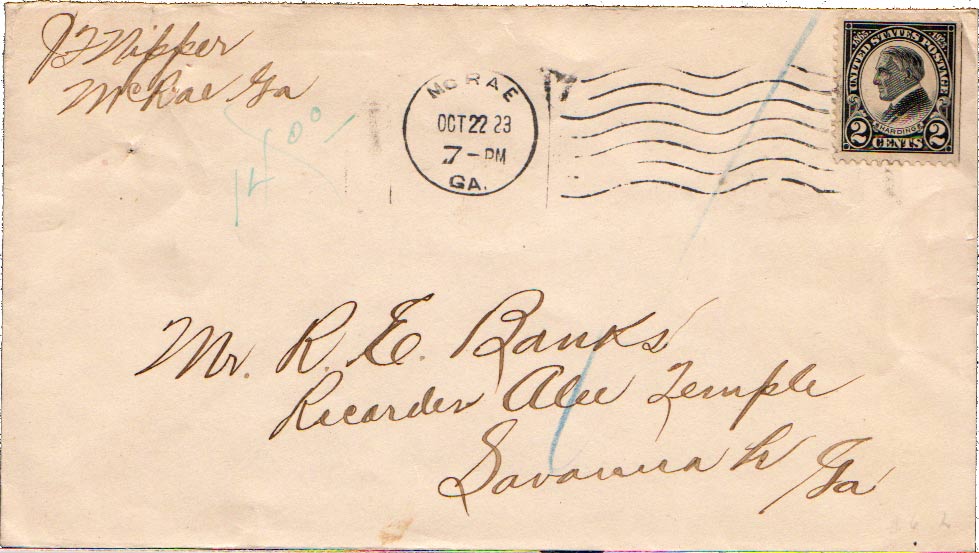 J F Nipper
McRae Ga
McRAE
OCT 22 23
7 - PM
GA.
1865 1923
UNITED STATES POSTAGE
HARDING
2 CENTS 2
Mr. R. E. Banks
Recorder Alee Temple
Savannah Ga